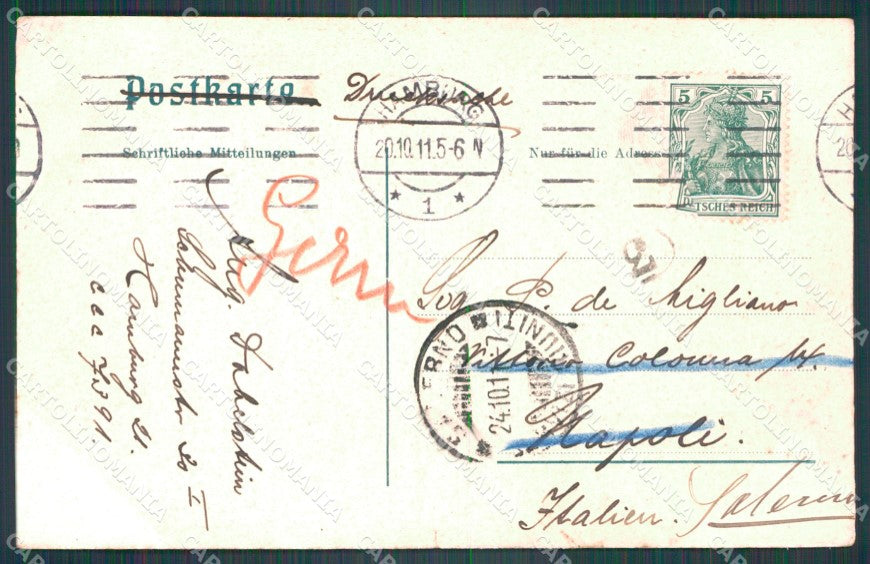 Postkarte Drucksache
HAMBURG
20.10.11.5-6 N
* 1 *
5 5
DEUTSCHES REICH
Schriftliche Mitteilungen
Nur für die Adresse
Aug. Dahlstein
Schumannstr 20 I
Hamburg 21.
Sig P. de Migliano
Vittoria Colonna
Napoli.
Italien. Salerno
SALERNO
24.10.11
CARTOLINOMANIA